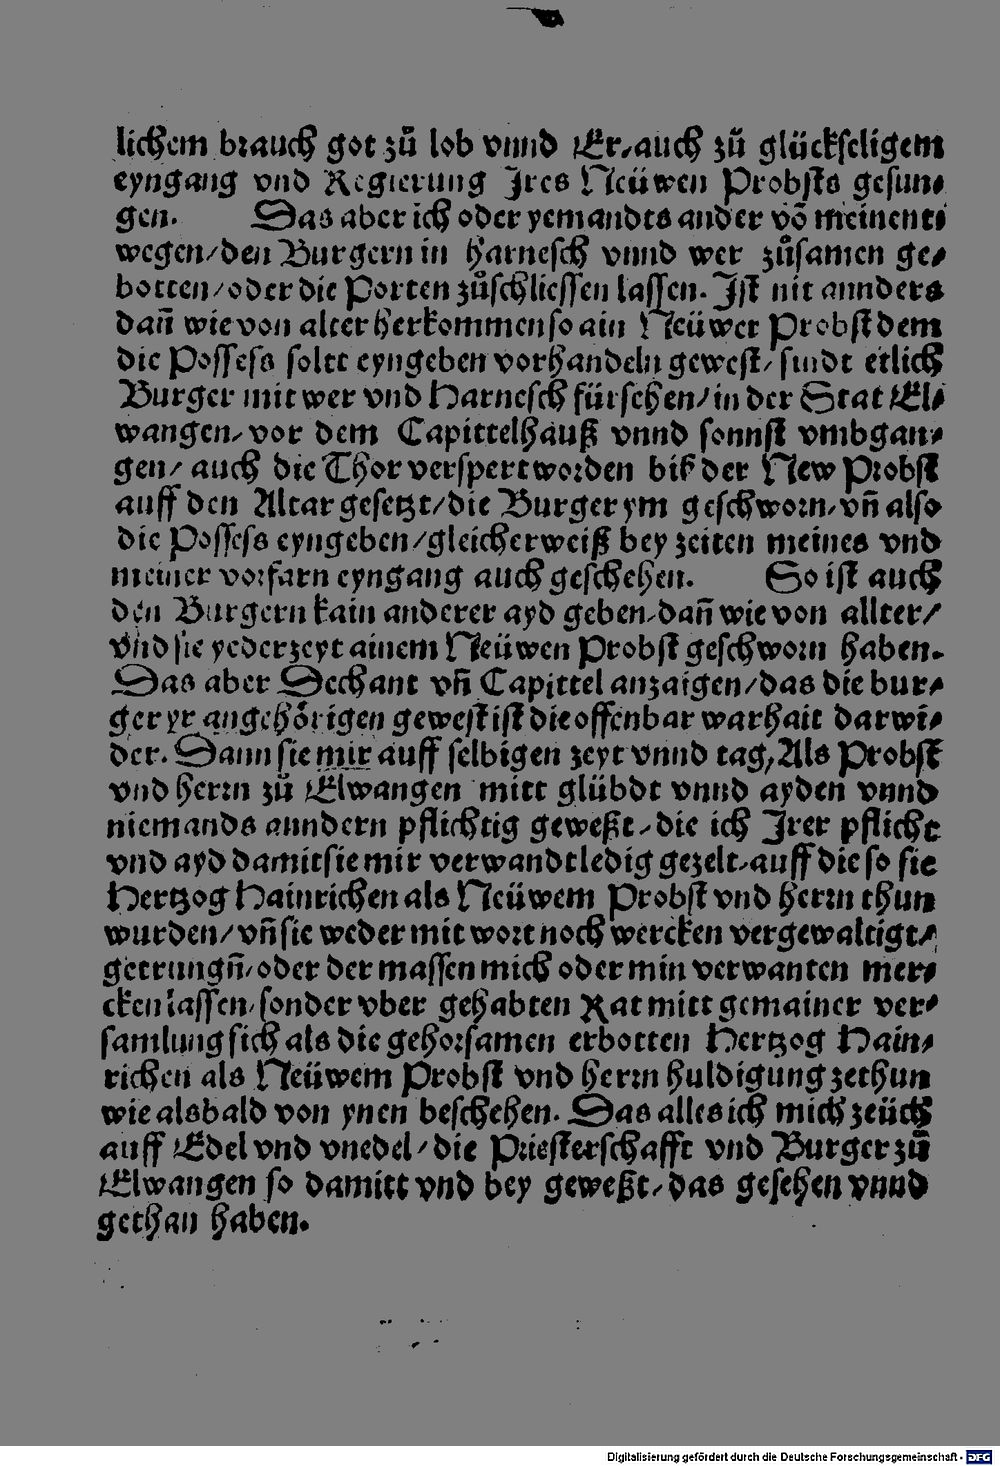 lichem brauch got zů lob vnnd Er, auch zů glückseligem
eyngang vnd Regierung Ires Neüwen Probsts gesun⸗
gen. Das aber ich oder yemandts ander võ meinent⸗
wegen/den Burgern in harnesch vnnd wer zůsamen ge⸗
botten/oder die Porten zůschliessen lassen. Ist nit annders
dañ wie von alter herkommen so ain Neüwer Probst dem
die Possess soltt eyngeben vorhandeln gewest/ sindt etlich
Burger mit wer vnd Harnesch fürsehen/in der Stat El⸗
wangen, vor dem Capittelhauß vnnd sonnst vmbgan⸗
gen/ auch die Thor verspert worden biß der New Probst
auff den Altar gesetzt/die Burger ym geschworn, vñ also
die Possess eyngeben/gleicherweiß bey zeiten meines vnd
meiner vorfarn eyngang auch geschehen. So ist auch
den Burgern kain anderer ayd geben, dañ wie von allter/
vnd sie yederzeyt ainem Neüwen Probst geschworn haben.
Das aber Dechant vñ Capittel anzaigen/das die bur⸗
ger yr angehörigen gewest ist die offenbar warhait darwi⸗
der. Dann sie mir auff selbigen zeyt vnnd tag, Als Probst
vnd herrn zů Elwangen mitt glübdt vnnd ayden vnnd
niemands anndern pflichtig geweßt, die ich Irer pflicht
vnd ayd damit sie mir verwandt ledig gezelt, auff die so sie
Hertzog Hainrichen als Neüwem Probst vnd herrn thun
wurden/ vñ sie weder mit wort noch wercken vergewaltigt/
getrungñ, oder der massen mich oder min verwanten mer⸗
cken lassen, sonder vber gehabten Rat mitt gemainer ver⸗
samlung sich als die gehorsamen erbotten Hertzog Hain⸗
richen als Neüwem Probst vnd herrn huldigung zethun
wie alsbald von ynen beschehen. Das alles ich mich zeüch
auff Edel vnd vnedel/ die Priesterschafft vnd Burger zů
Elwangen so damitt vnd bey geweßt, das gesehen vnnd
gethan haben.
Digitalisierung gefördert durch die Deutsche Forschungsgemeinschaft - DFG